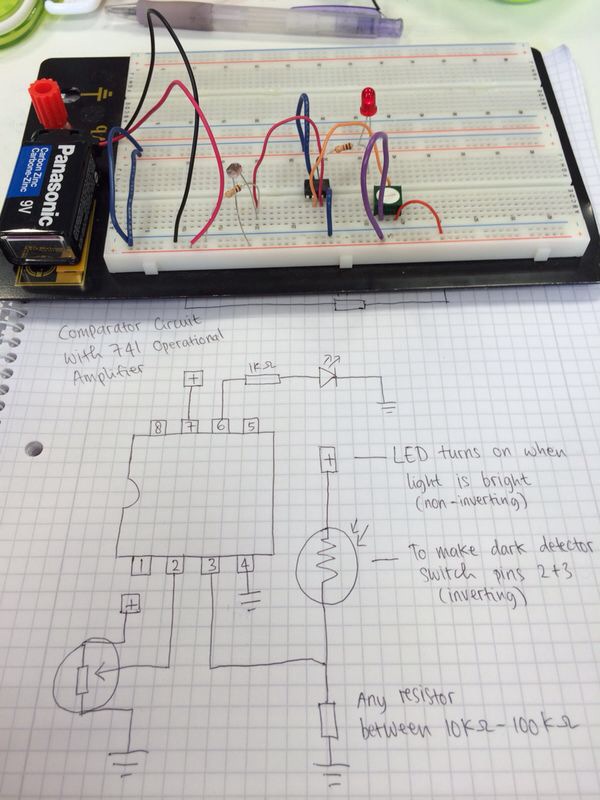 Panasonic
Carbon Zinc
Carbone-Zinc
9V
Comparator Circuit
with 741 Operational
Amplifier
1KΩ
+
8 7 6 5
+
LED turns on when
light is bright
(non-inverting)
1 2 3 4
To make dark detector
switch pins 2+3
(inverting)
+
Any resistor
between 10KΩ - 100KΩ